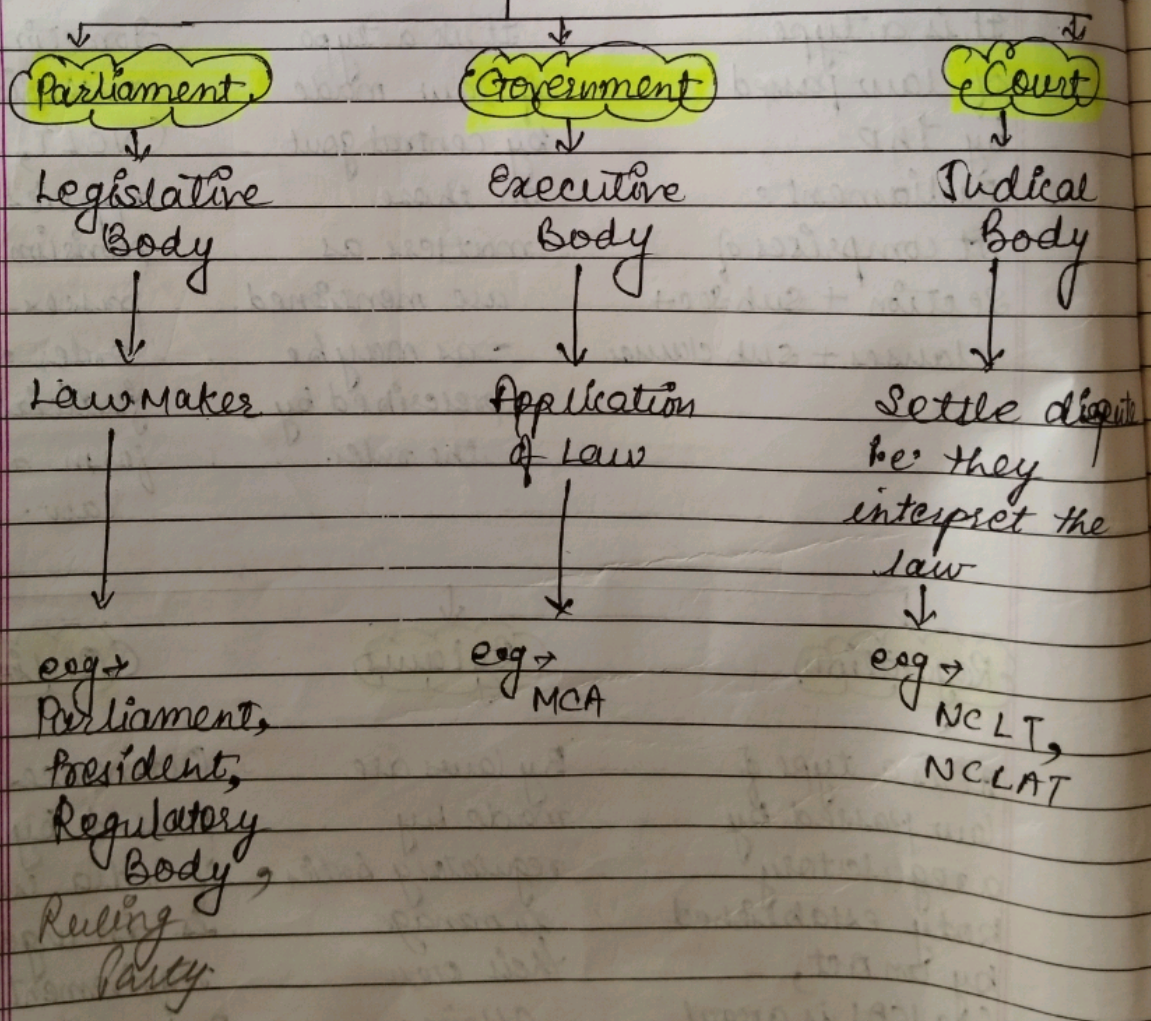 Parliament
Legislative
Body
Law Maker
eg →
Parliament,
President,
Regulatory
Body,
Ruling
Party.
Government
Executive
Body
Application
of Law
eg →
MCA
Court
Judical
Body
Settle dispute
be: they
interpret the
law
eg →
NCLT,
NCLAT